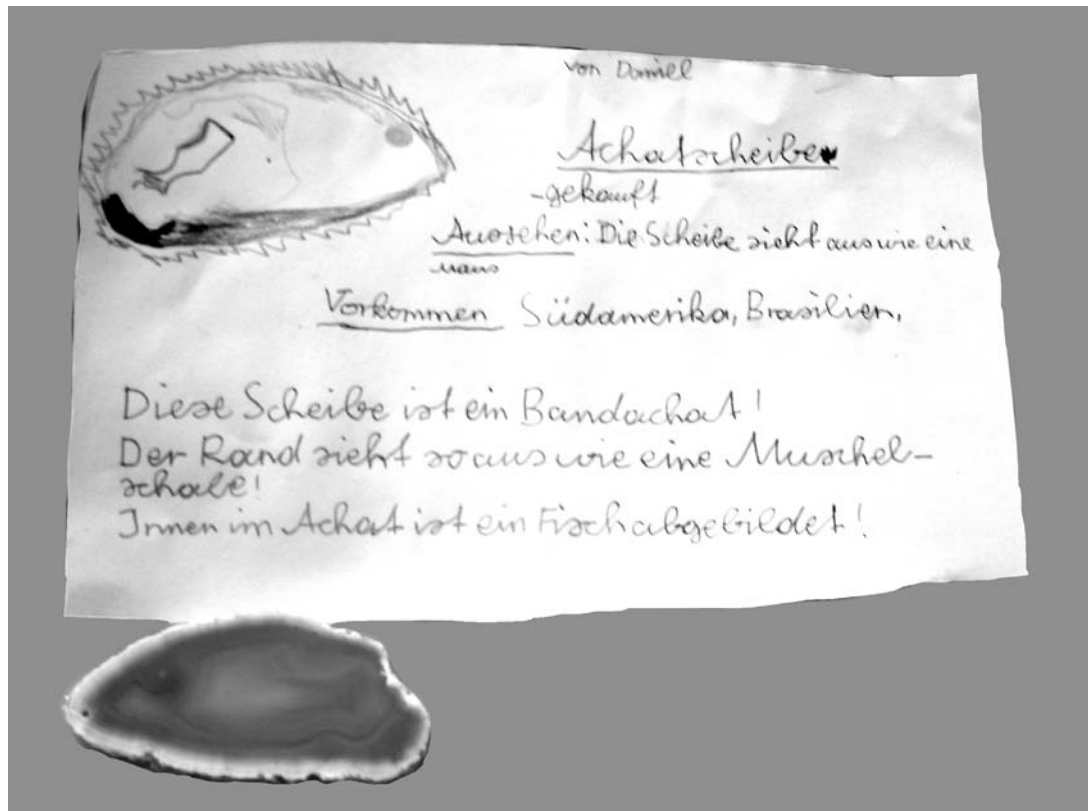 von Daniel
Achatscheibe
-gekauft
Aussehen: Die Scheibe sieht aus wie eine
Maus
Vorkommen Südamerika, Brasilien,
Diese Scheibe ist ein Bandachat!
Der Rand sieht so aus wie eine Muschel-
schale!
Innen im Achat ist ein Fisch abgebildet!